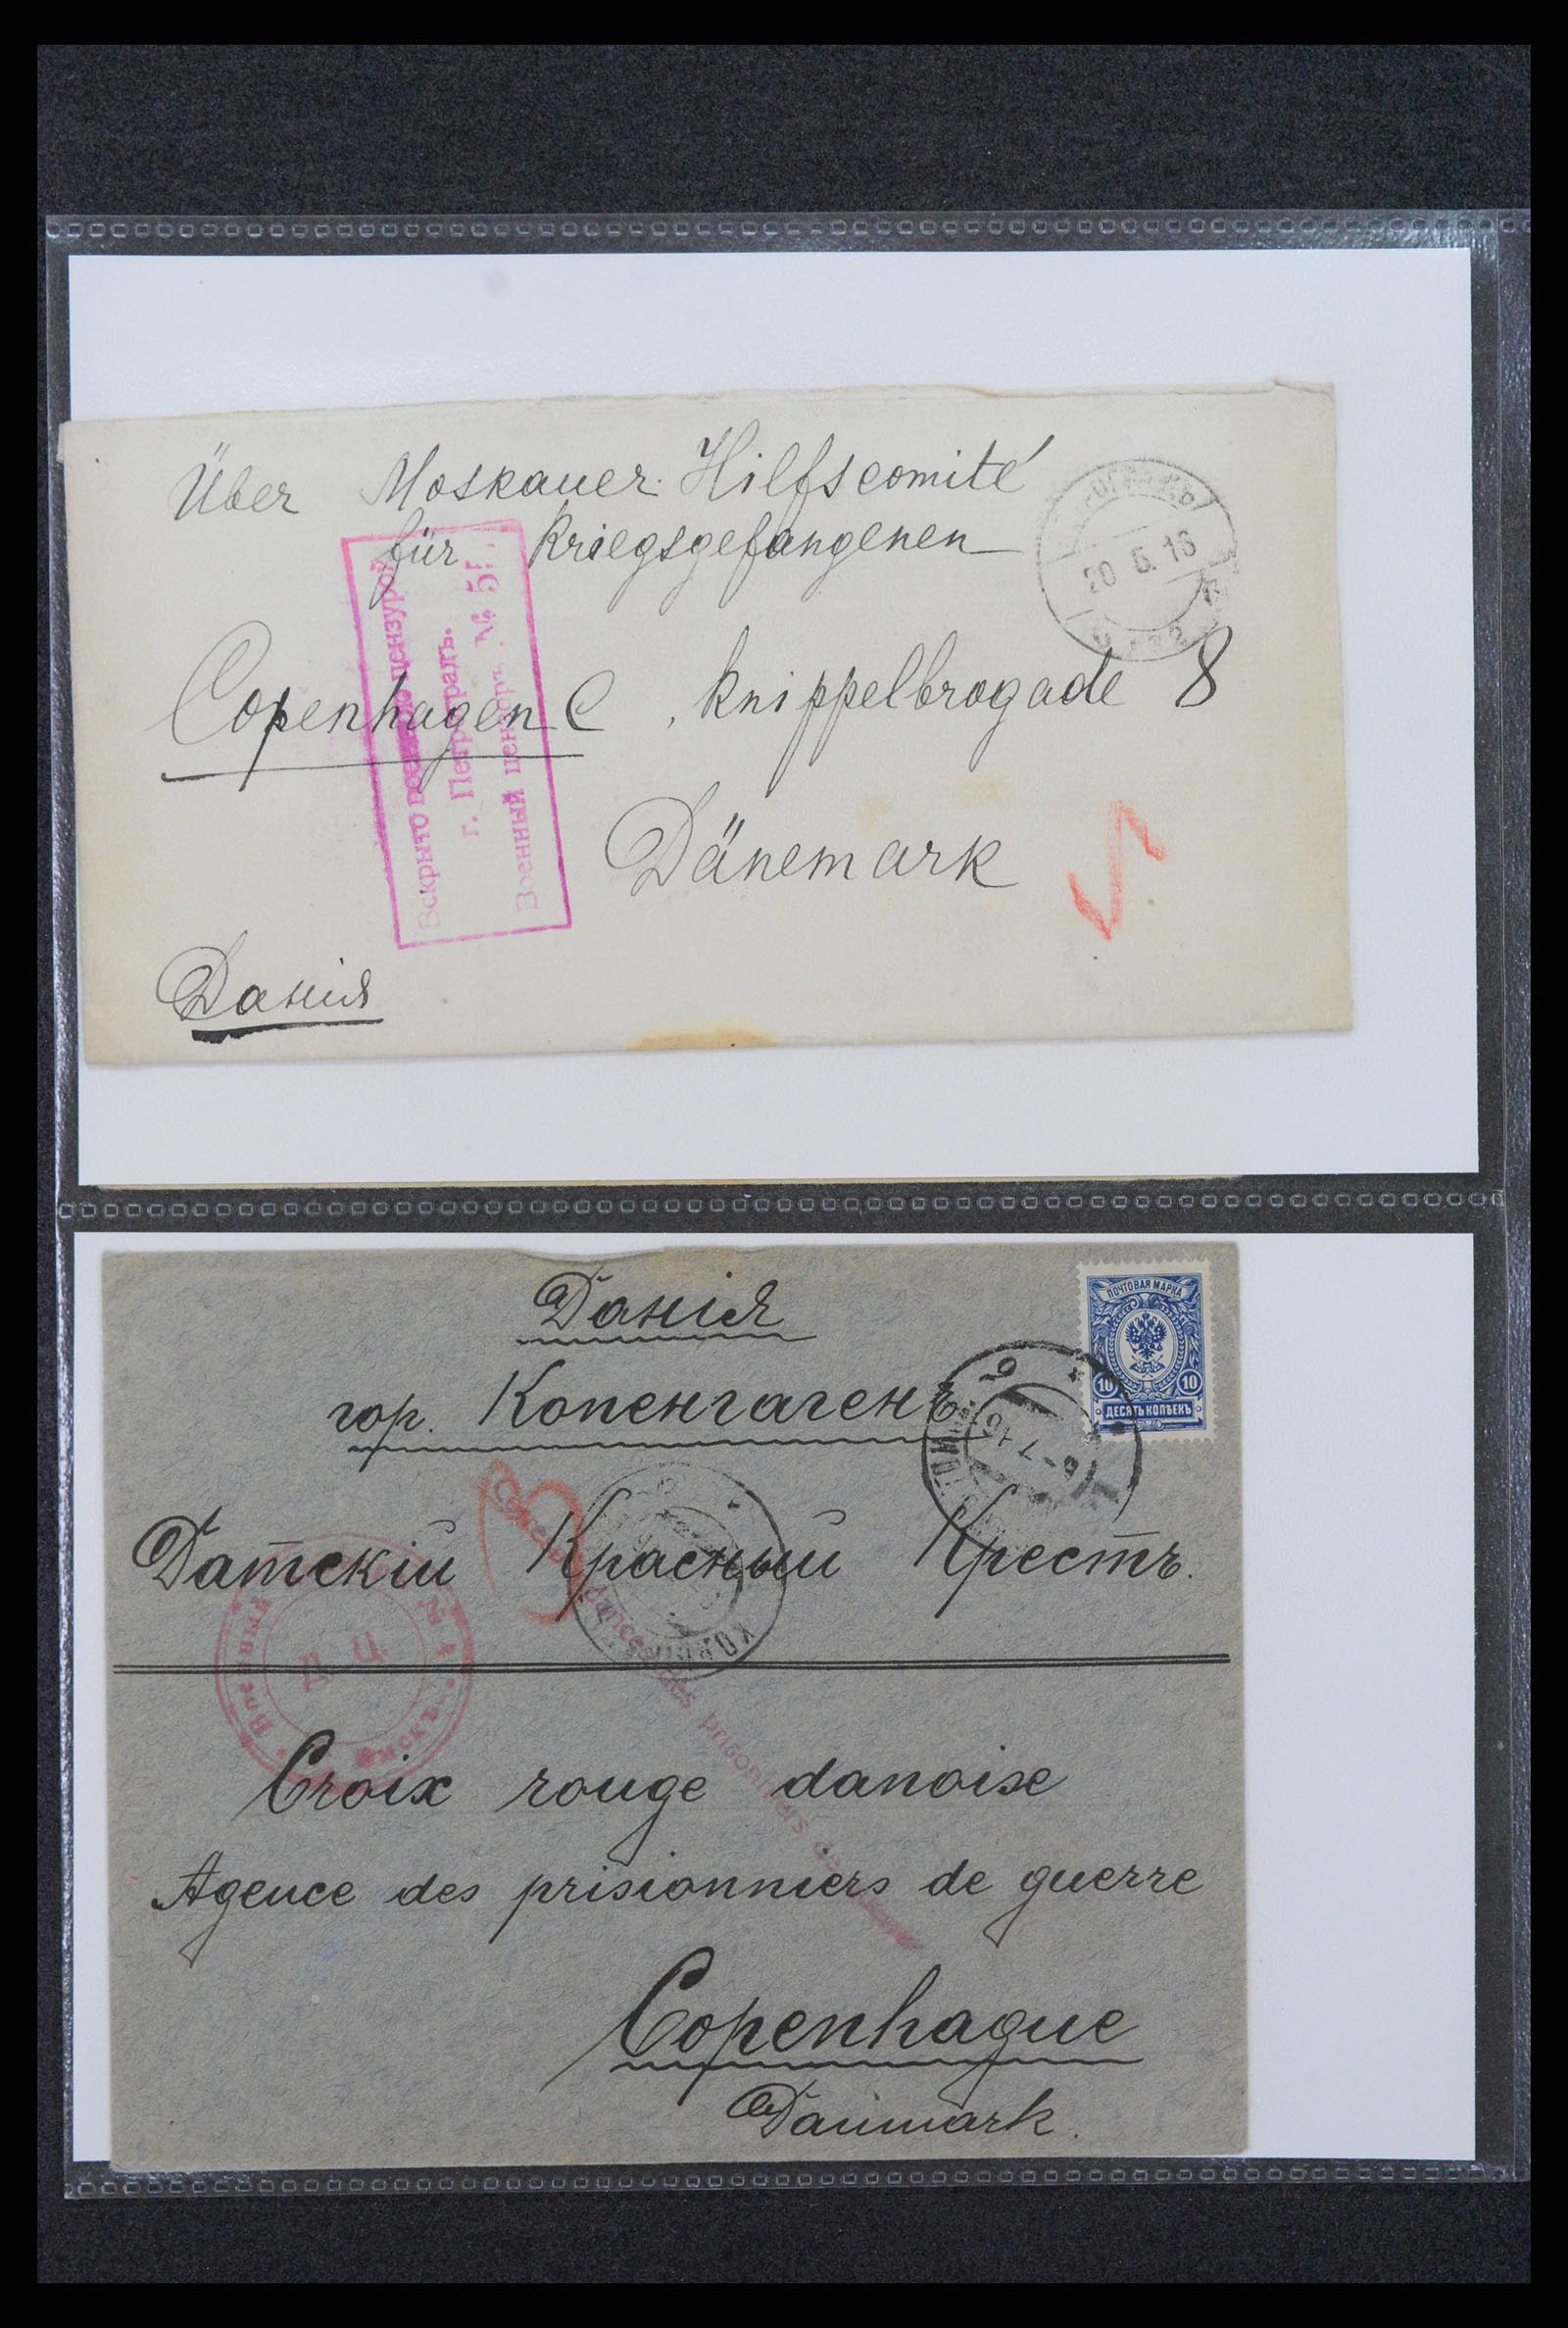 Über Moskauer Hilfscomité
für Kriegsgefangenen
20 5. 16
Вскрыто военной цензурой
г. Петроградъ.
Военный цензоръ №
Copenhagen C, Knippelbrogade 8
Dänemark
Данія
Данія
ПОЧТОВАЯ МАРКА
10 10
ДЕСЯТЬ КОПѢЕКЪ
гор. Копенгагенъ
Датскій Красный Крестъ.
Д Ц
des prisonniers
Croix rouge danoise
Agence des prisionniers de guerre
Copenhague
Danmark.